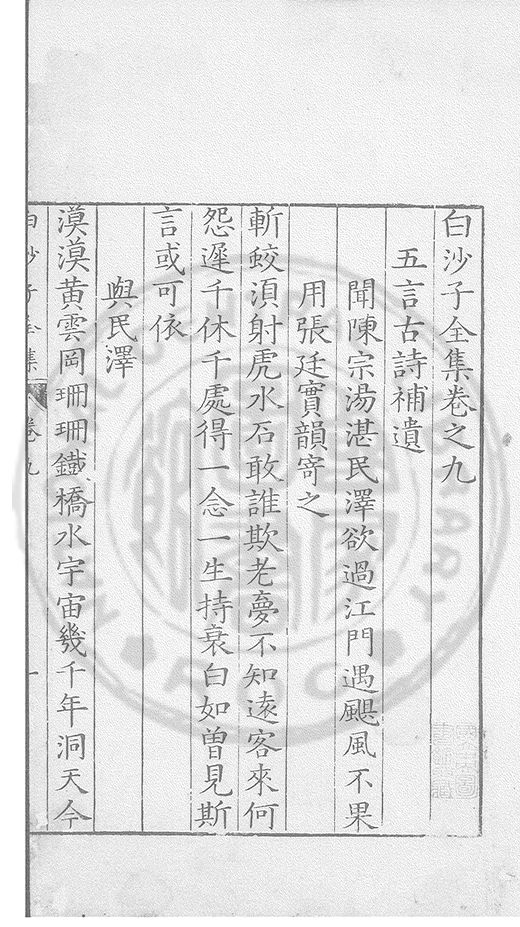 白沙子全集卷之九
五言古詩補遺
聞陳宗湯湛民澤欲過江門遇颶風不果
用張廷實韻寄之
斬蛟湏射虎水石敢誰欺老夢不知遠客來何
怨遲千休千處得一念一生持衰白如曾見斯
言或可依
與民澤
漠漠黃雲岡珊珊鐵橋水宇宙幾千年洞天今
白沙子全集 卷九 一